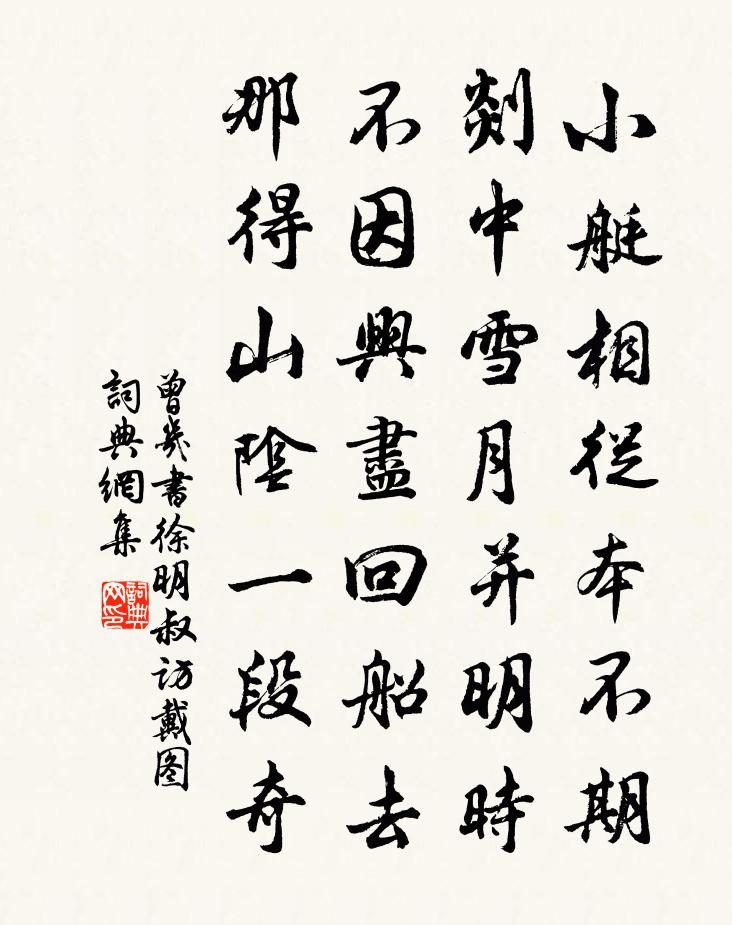 小艇相從本不期
剡中雪月并明時
不因興盡回船去
那得山陰一段奇
曾幾書徐明叔访戴图
詞典網集
詞典网印